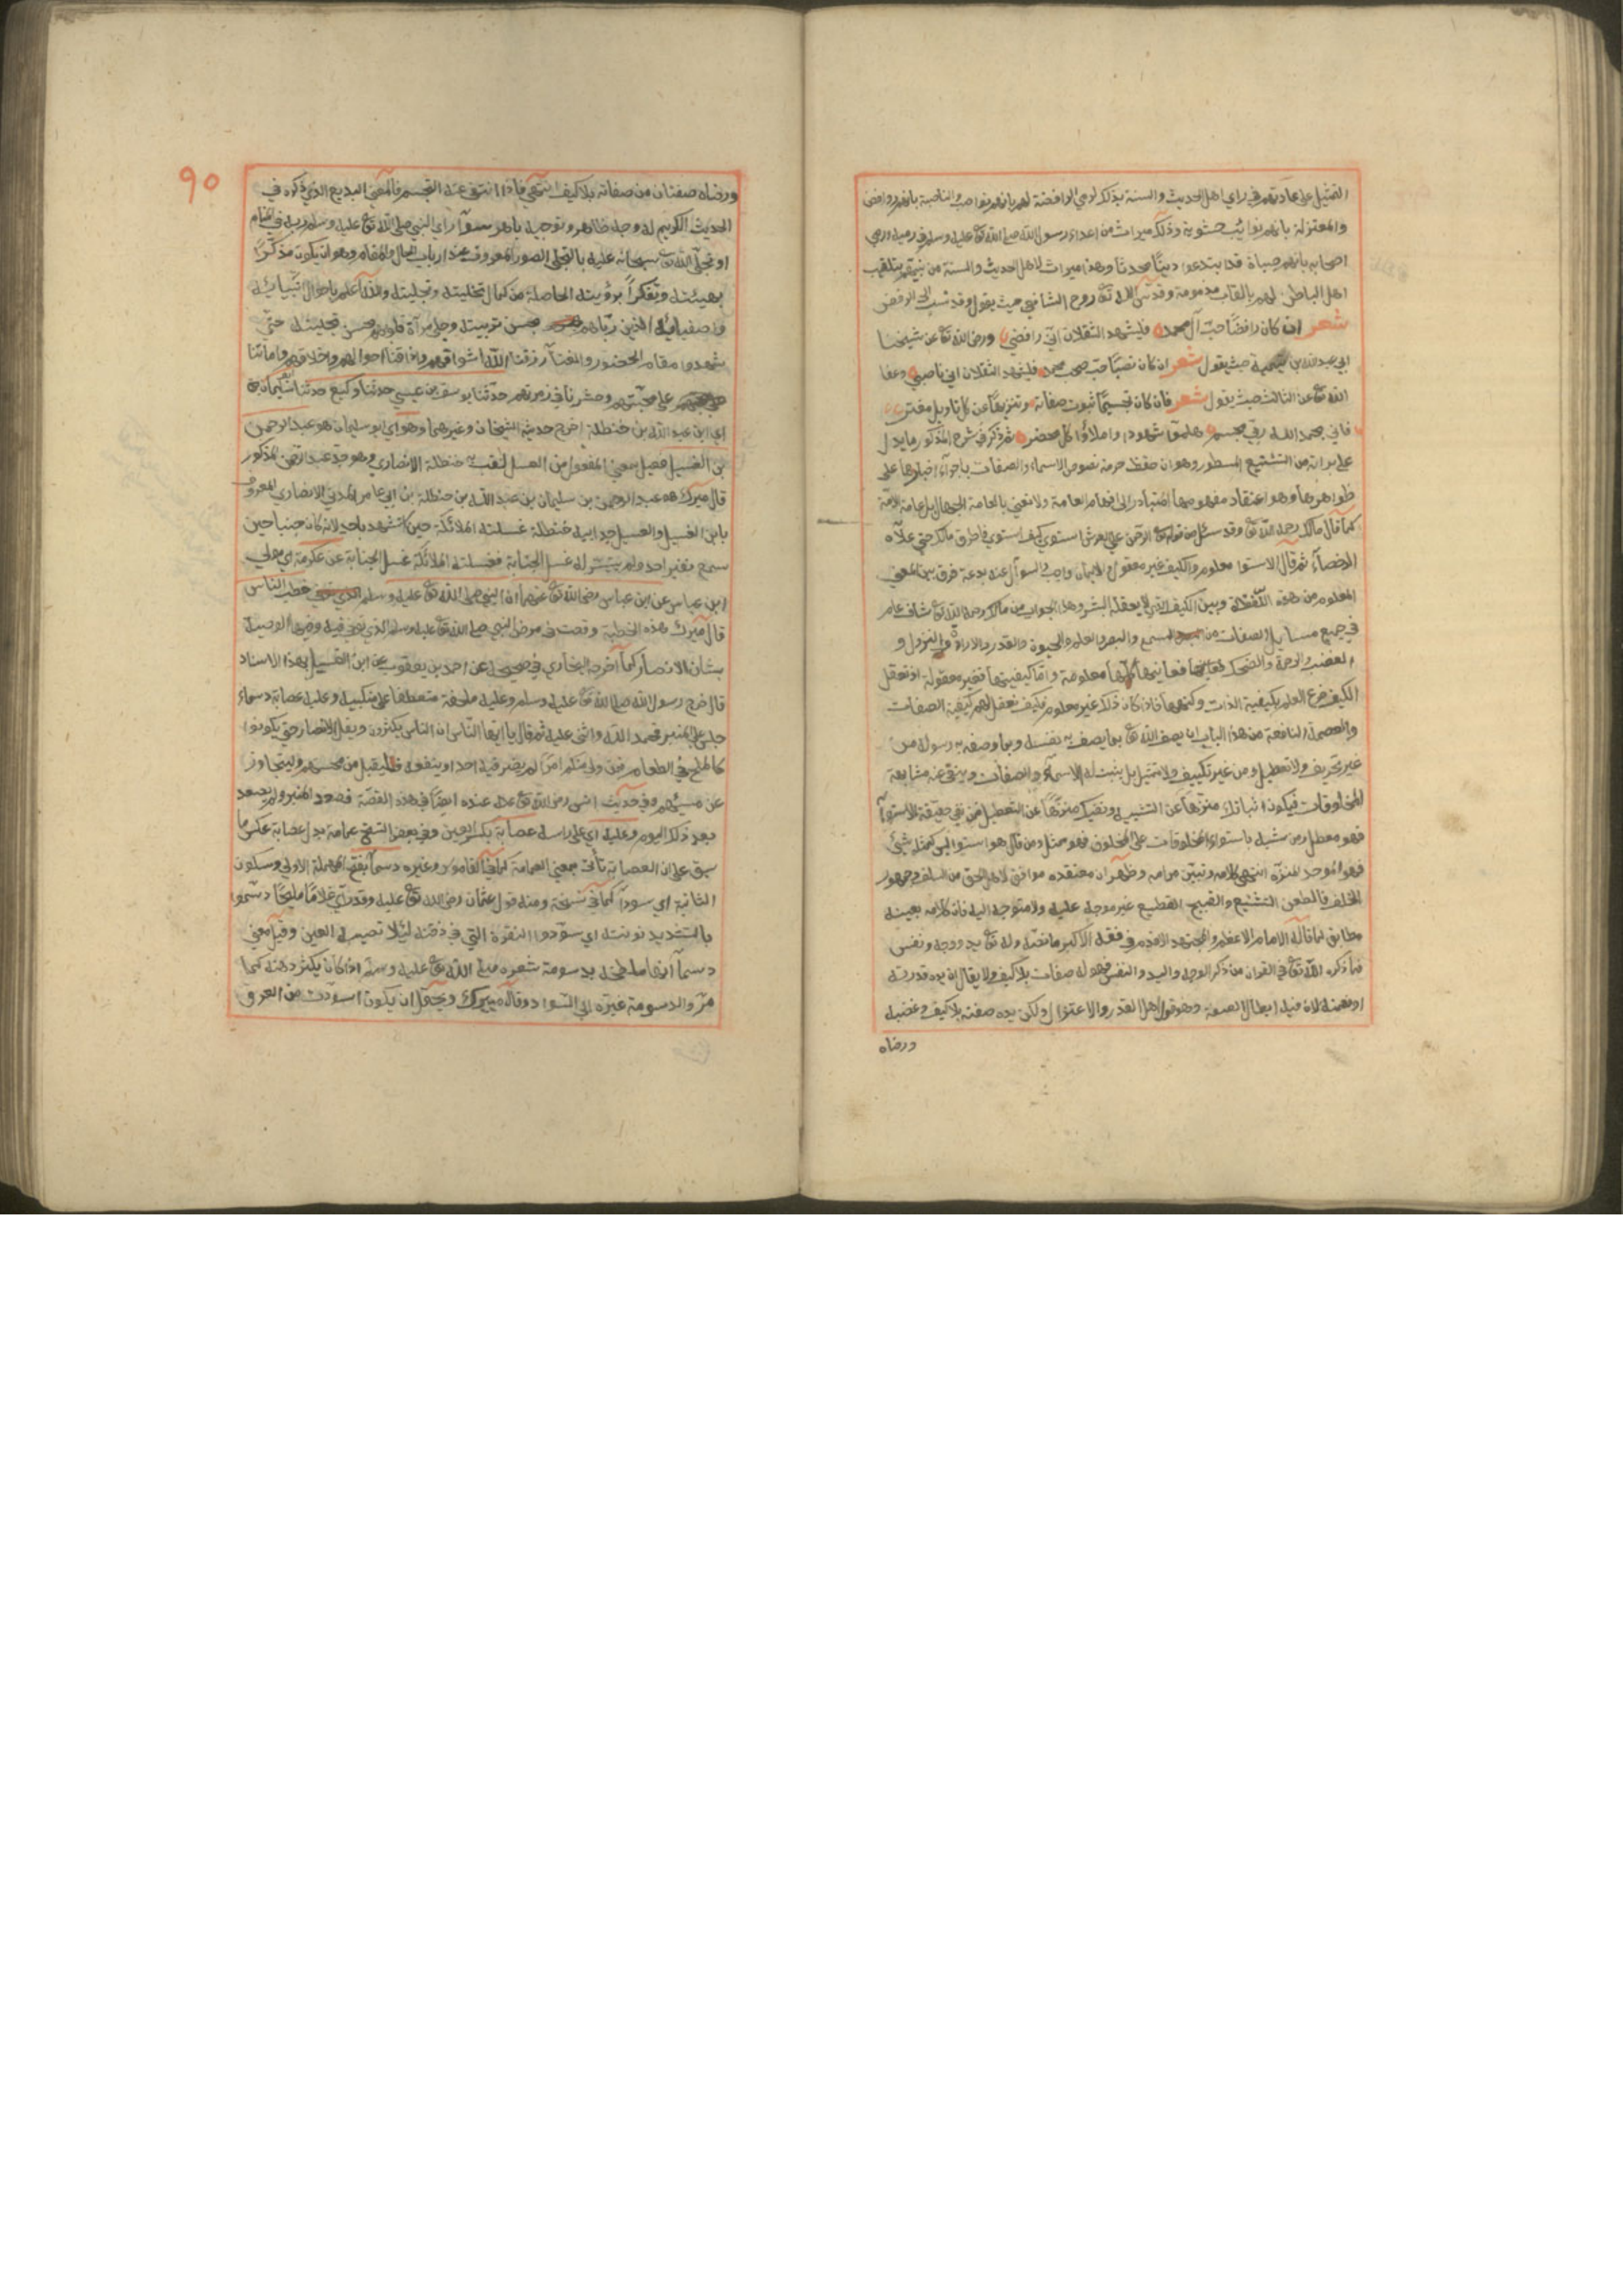 التمثيل على عادتهم في راي اهل الحديث والسنة بذلك كرمي الرافضة لهم بانهم نواصب والناصبة بانهم روافض
والمعتزلة بانهم نوائب حشوية وذلك ميراث من اعداء رسول الله صلى الله تع عليه وسلم في رميه ورمي
اصحابه بانهم صباة قد ابتدعوا دينا محدثا وهذا ميراث لاهل الحديث والسنة من نبيهم بتلقيب
اهل الباطل لهم بالقاب مذمومة وقدس الله تع روح الشافعي حيث يقول وقد نسب الى الرفض
شعر ان كان رافضا حب آل محمد فليشهد الثقلان اني رافضي ورضي الله تع عن شيخنا
ابي عبد الله بن تيمية حيث يقول شعر ان كان نصبا حب صحب محمد فليشهد الثقلان اني ناصبي وعفا
الله تع عن الثالث حيث يقول شعر فان كان تجسيما ثبوت صفاته وتنزيهها عن كل تاويل مفتر
فاني بحمد الله ربي مجسم هلموا شهودا واملاؤا كل محضر ثم ذكر في شرح المذكور ما يدل
على براته من التشنيع المسطور وهو ان حفظ حرمة نصوص الاسماء والصفات باجراء اخبارها على
ظواهرها وهو اعتقاد مفهومها المتبادر الى افهام العامة ولا نعني بالعامة الجهال بل عامة الامة
كما قال مالك رحمه الله تع وقد سئل من قوله تع الرحمن على العرش استوى كيف استوى فاطرق مالك حتى علاه
الرحضاء ثم قال الاستوا معلوم والكيف غير معقول والايمان واجب والسؤال عنه بدعة فرق بين المعنى
المعلوم من هذه اللفظة وبين الكيف الذي لا يعقله البشر وهذا الجواب من مالك رحمه الله تع شاف عام
في جميع مسايل الصفات من السمع والبصر والعلم والحيوة والقدرة والارادة والنزول و
الغضب والرحمة والضحك فمعانيها كلها معلومة واما كيفيتها فغير معقولة اذ تعقل
الكيف فرع العلم بكيفية الذات وكنهها فاذا كان ذلك غير معلوم فكيف نعقل لهم كيفية الصفات
والعصمة النافعة من هذا الباب ان يصف الله تع بما يصف به نفسه وبما وصفه به رسوله من
غير تحريف ولا تعطيل ومن غير تكييف ولا تمثيل بل يثبت له الاسماء والصفات وينفي عنه مشابهة
المخلوقات فيكون اثباتك منزها عن التشبيه ونفيك منزها عن التعطيل فمن نفى حقيقة الاستوا
فهو معطل ومن شبه باستواء المخلوقات على المخلوق فهو ممثل ومن قال هو استوا ليس كمثله شيئ
فهو الموحد المنزه انتهى كلامه وتبين مرامه وظهر ان معتقده موافق لاهل الحق من السلف وجمهور
الخلف فالطعن التشنيع والقبيح الفظيع غير موجه عليه ولا متوجه اليه فان كلامه بعينه
مطابق لما قاله الامام الاعظم والمجتهد الاقدم في فقهه الاكبر ما نصه وله تع يد ووجه ونفس
فما ذكره الله تع في القران من ذكر الوجه واليد والنفس فهو له صفات بلا كيف ولا يقال ان يده قدرته
او نعمته لان فيه ابطال الصفة وهو قول اهل القدر والاعتزال ولكن يده صفته بلا كيف وغضبه
ورضاه
٩٠
ورضاه صفتان من صفاته بلا كيف انتهى فاذا انتفى عنه التجسم فالمعنى البديع الذي ذكره في
الحديث الكريم له وجه ظاهر وتوجيه باهر سوآ راي النبي صلى الله تع عليه وسلم ربه في المنام
او تجلى الله تع سبحانه عليه بالتجلي الصوري المعروف عند ارباب الحال والمقام وهو ان يكون مذكرا
بهيئته وتفكرا برؤيته الحاصلة من كمال تخليته وتجليته والله اعلم باحوال انبيائه
واصفيائه الذين رباهم بحسن تربيته وجلى مرآة قلوبهم بحسن تجليته حتى
شهدوا مقام الحضور والفنآ رزقنا الله اشواقهم واذاقنا احوالهم واخلاقهم واماتنا
على محبتهم وحشرنا في زمرتهم حدثنا يوسف بن عيسى حدثنا وكيع حدثنا ابو سليمان
اي ابن عبد الله بن حنظلة اخرج حديثه الشيخان وغيرهما وهو اي ابو سليمان هو عبد الرحمن
بن الغسيل فعيل بمعنى المفعول من الغسل لقب به حنظلة الانصاري وهو جد عبد الرحمن المذكور
قال ميرك هو عبد الرحمن بن سليمان بن عبد الله بن حنظلة بن ابي عامر المدني الانصاري المعروف
بابن الغسيل والغسيل جد ابيه حنظلة غسلته الملائكة حين استشهد باحد لانه كان جنبا حين
سمع نفير احد ولم يتيسر له غسل الجنابة فغسلته الملائكة غسل الجنابة عن عكرمة اي مولى
ابن عباس عن ابن عباس رضي الله تع عنهما ان النبي صلى الله تع عليه وسلم خطب الناس
قال ميرك هذه الخطبة وقعت في مرض النبي صلى الله تع عليه وسلم الذي توفي فيه وفيها الوصية
بشان الانصار كما اخرجه البخاري في صحيحه عن احمد بن يعقوب عن ابن الغسيل بهذا الاسناد
قال خرج رسول الله صلى الله تع عليه وسلم وعليه ملحفة متعطفا على منكبيه وعليه عصابة دسماء
جلس على المنبر فحمد الله واثنى عليه ثم قال يا ايها الناس ان الناس يكثرون ويقل الانصار حتى يكونوا
كالملح في الطعام فمن ولي منكم امرا لم يضر فيه احدا وينفعه فليقبل من محسنهم وليتجاوز
عن مسيئهم وفي حديث انس رضي الله تع عنه ايضا في هذه القصة فصعد المنبر ولم يصعد
بعد ذلك اليوم وعليه اي على راسه عصابة بكسر العين وفي بعض النسخ عمامة بدل عصابة عكس ما
سبق على ان العصابة تأتي بمعنى العمامة كما في القاموس وغيره دسمآ بفتح المهملة الاولى وسكون
الثانية اي سودآ كما في نسخة ومنه قول عثمان رضي الله تع عليه وقد رآى غلاما مليحا دسموا
بالتشديد نونته اي سودوا النقرة التي في ذقنه لئلا تصيبه العين وقيل معنى
دسمآ انها ملطخة بدسومة شعره صلى الله تع عليه وسلم اذ كان يكثر دهنه كما
مر والدسومة غبرة الى السواد وقال ميرك ويحتمل ان يكون اسودت من العرق